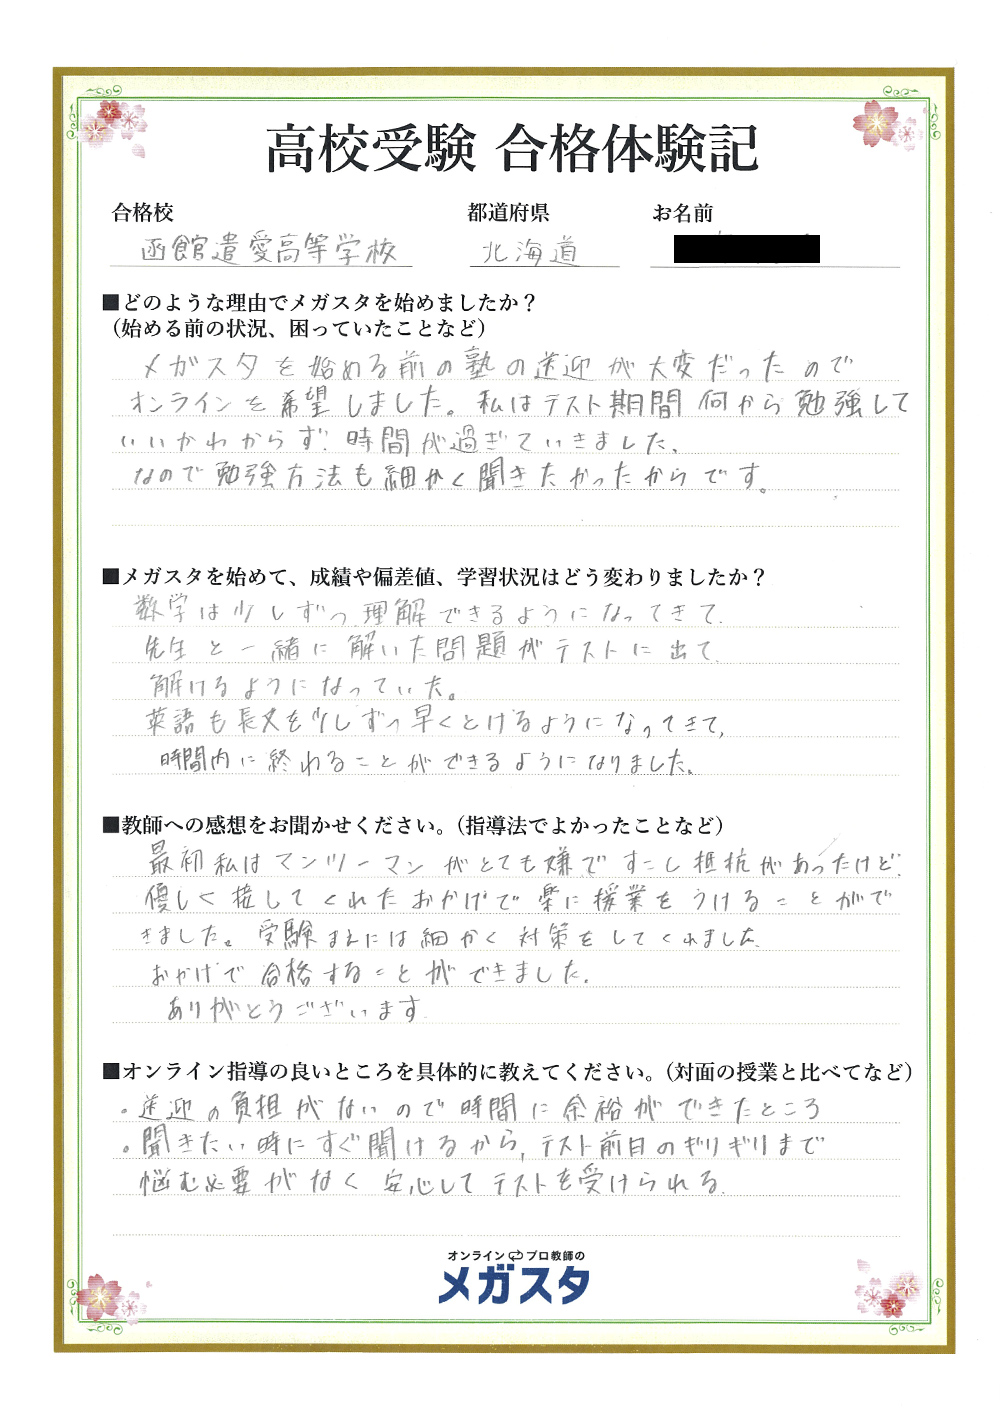 高校受験 合格体験記
合格校 都道府県 お名前
函館遺愛高等学校 北海道
■どのような理由でメガスタを始めましたか？
（始める前の状況、困っていたことなど）
メガスタを始める前の塾の送迎が大変だったので
オンラインを希望しました。私はテスト期間何から勉強して
いいかわからず、時間が過ぎていきました、
なので勉強方法も細かく聞きたかったからです。
■メガスタを始めて、成績や偏差値、学習状況はどう変わりましたか？
数学は少しずつ理解できるようになってきて、
先生と一緒に解いた問題がテストに出て、
解けるようになっていた。
英語も長文を少しずつ早くとけるようになってきて、
時間内に終わることができるようになりました。
■教師への感想をお聞かせください。（指導法でよかったことなど）
最初私はマンツーマンがとても嫌ですこし抵抗があったけど、
優しく接してくれたおかげで楽に授業をうけることがで
きました。受験まえには細かく対策をしてくれました。
おかげで合格することができました。
ありがとうございます。
■オンライン指導の良いところを具体的に教えてください。（対面の授業と比べてなど）
・送迎の負担がないので時間に余裕ができたところ
・聞きたい時にすぐ聞けるから、テスト前日のギリギリまで
悩む必要がなく安心してテストを受けられる。
オンライン プロ教師の
メガスタ